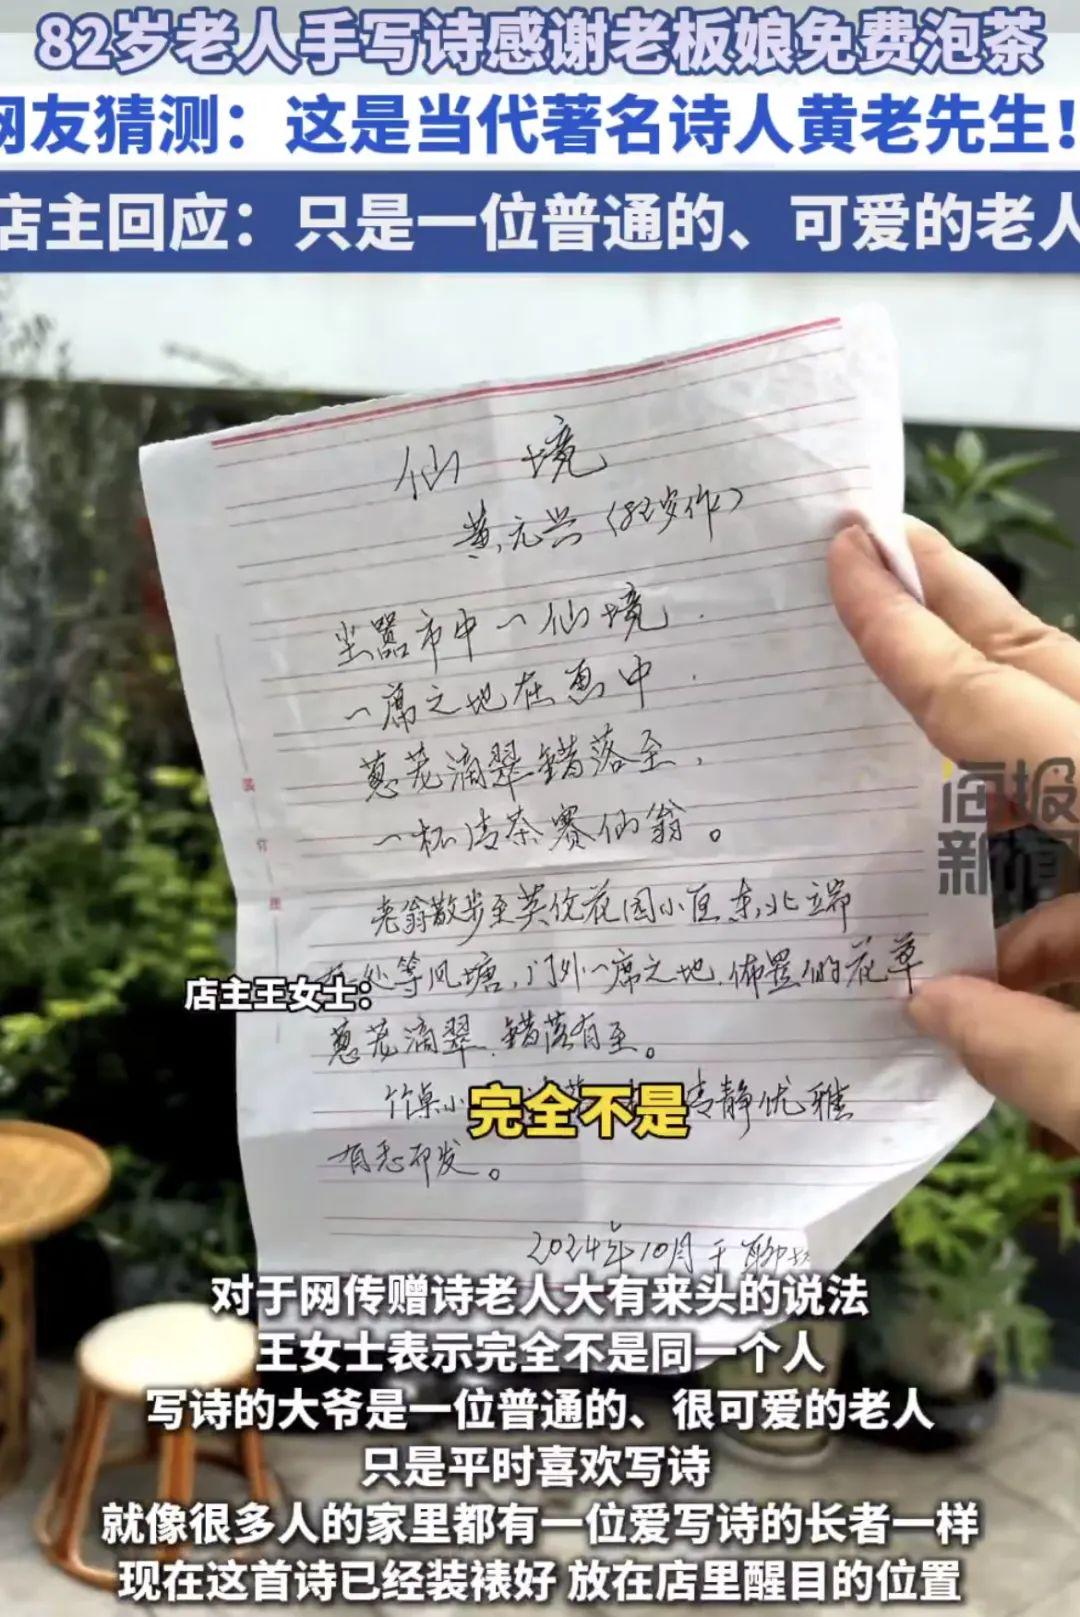 82岁老人手写诗感谢老板娘免费泡茶
网友猜测：这是当代著名诗人黄老先生！
店主回应：只是一位普通的、可爱的老人
仙境
黄元兴（82岁作）
尘嚣市中一仙境．
一席之地在惠中．
葱茏滴翠错落至，
一杯清茶赛仙翁。
海报
新闻
老翁散步至英伦花园小区东北端
处等风塘，门外一席之地，佈置的花草
店主王女士：
葱茏滴翠，错落有至。
竹桌小
清静优雅
完全不是
有感而发。
2024年10月于聊
装
订
对于网传赠诗老人大有来头的说法
王女士表示完全不是同一个人
写诗的大爷是一位普通的、很可爱的老人
只是平时喜欢写诗
就像很多人的家里都有一位爱写诗的长者一样
现在这首诗已经装裱好 放在店里醒目的位置